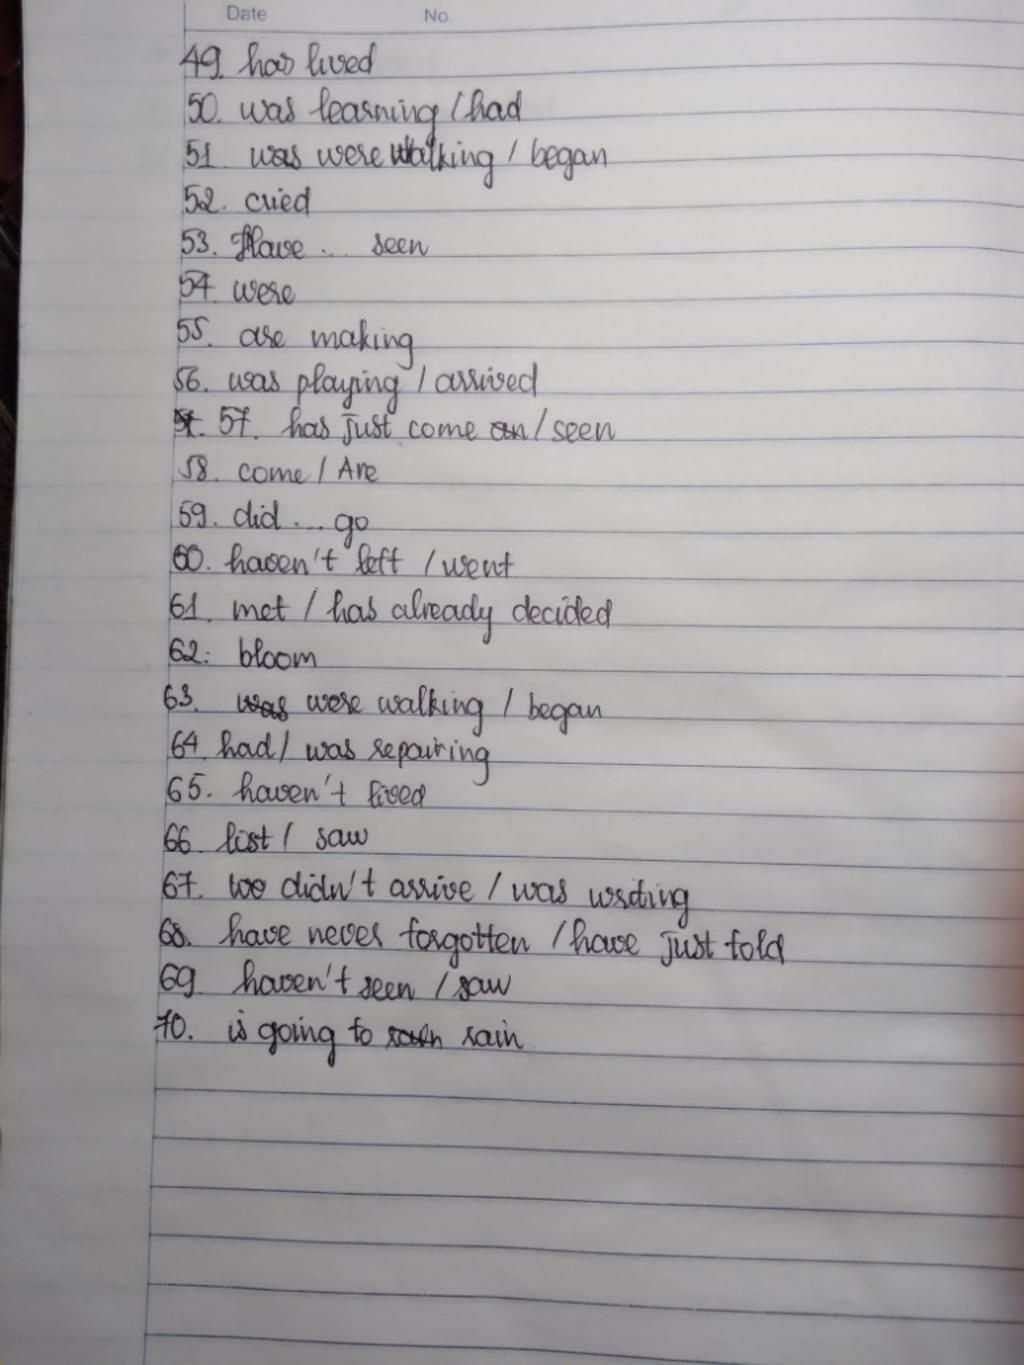 Date No.
49. has lived
50. was learning / had
51. was were walking / began
52. cried
53. Have ... seen
54. were
55. are making
56. was playing / arrived
57. has just come / seen
58. come / Are
59. did ... go
60. haven't left / went
61. met / has already decided
62: bloom
63. was were walking / began
64. had / was repairing
65. haven't lived
66. lost / saw
67. didn't arrive / was writing
68. have never forgotten / have just told
69. haven't seen / saw
70. is going to rain